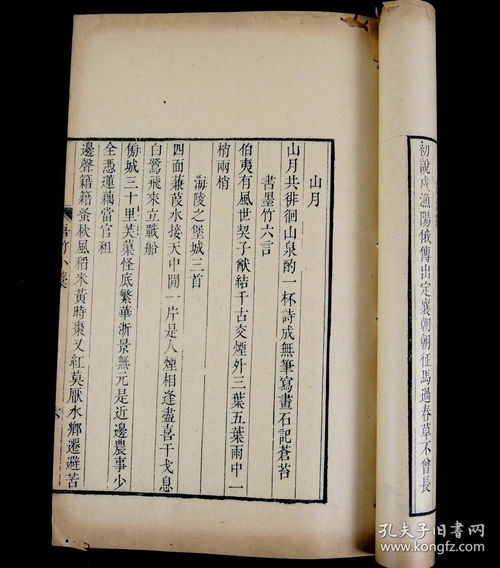 初說戍漁陽俄傳出定襄朝朝征馬過春草不曾長
山月
山月共徘徊山泉酌一杯詩成無筆寫畫石記蒼苔
書墨竹六言
伯夷有風世契子猷結千古交煙外三葉五葉雨中一
梢兩梢
海陵之堡城三首
四面蒹葭水接天中閒一片是人煙相逢盡喜干戈息
白鷺飛來立戰船
傍城三十里芙蕖怪底繁華浙景無元是近邊農事少
全憑蓮藕當官租
邊聲籍籍蚤秋風稻米黃時棗又紅莫厭水鄉遷避苦
吾竹小藁
六
孔夫子旧书网
www.kongfz.com